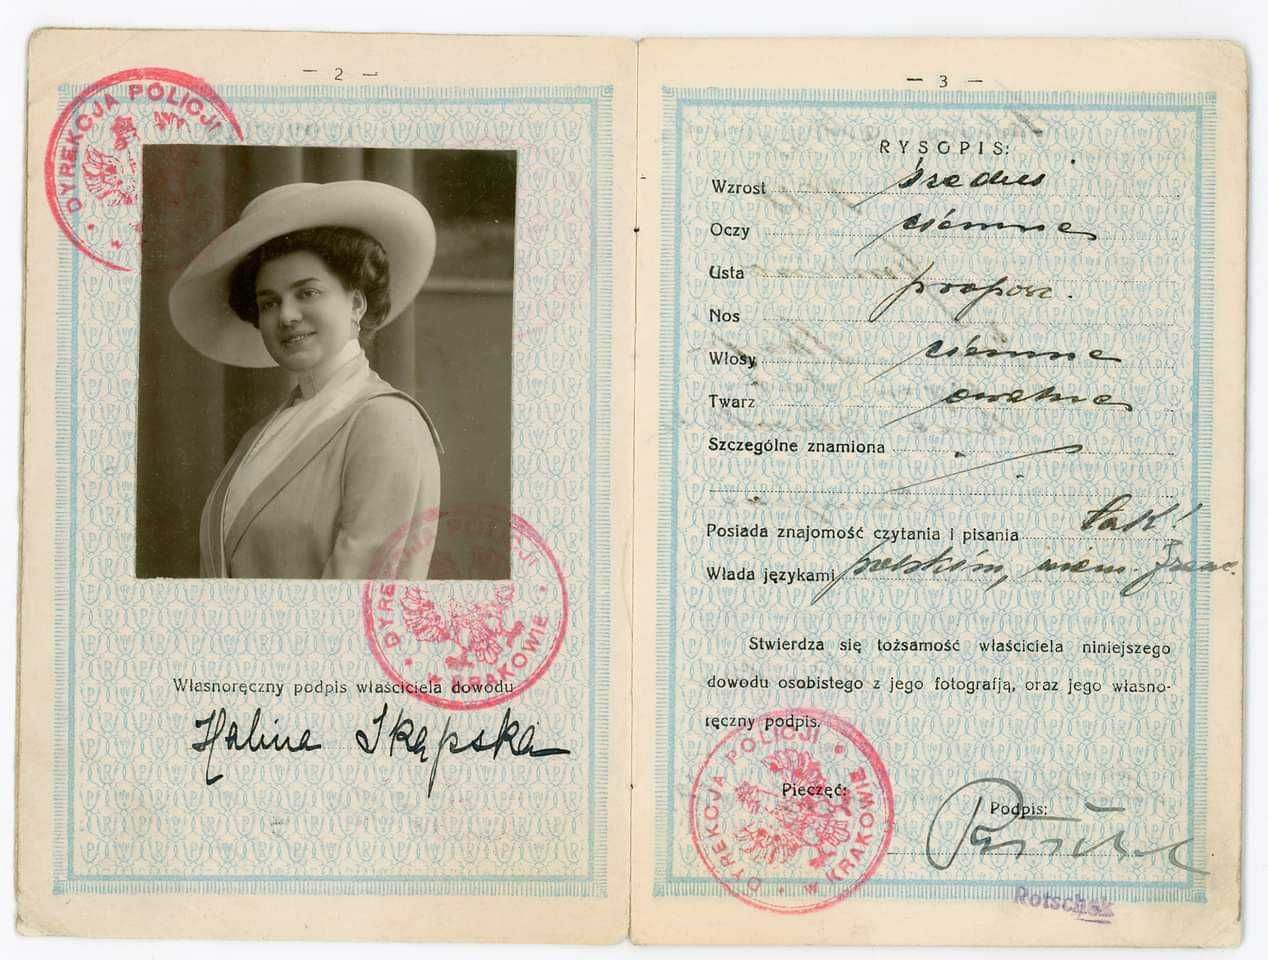 — 2 —
DYREKCJA POLICJI
DYREKCJA POLICJI W KRAKOWIE
Własnoręczny podpis właściciela dowodu
Halina Skąpska
— 3 —
RYSOPIS:
Wzrost średni
Oczy ciemne
Usta proporc.
Nos
Włosy ciemne
Twarz owalna
Szczególne znamiona
Posiada znajomość czytania i pisania tak!
Włada językami polskim, niem. franc.
Stwierdza się tożsamość właściciela niniejszego
dowodu osobistego z jego fotografją, oraz jego własno-
ręczny podpis.
DYREKCJA POLICJI W KRAKOWIE
Pieczęć:
Podpis:
Rotschek